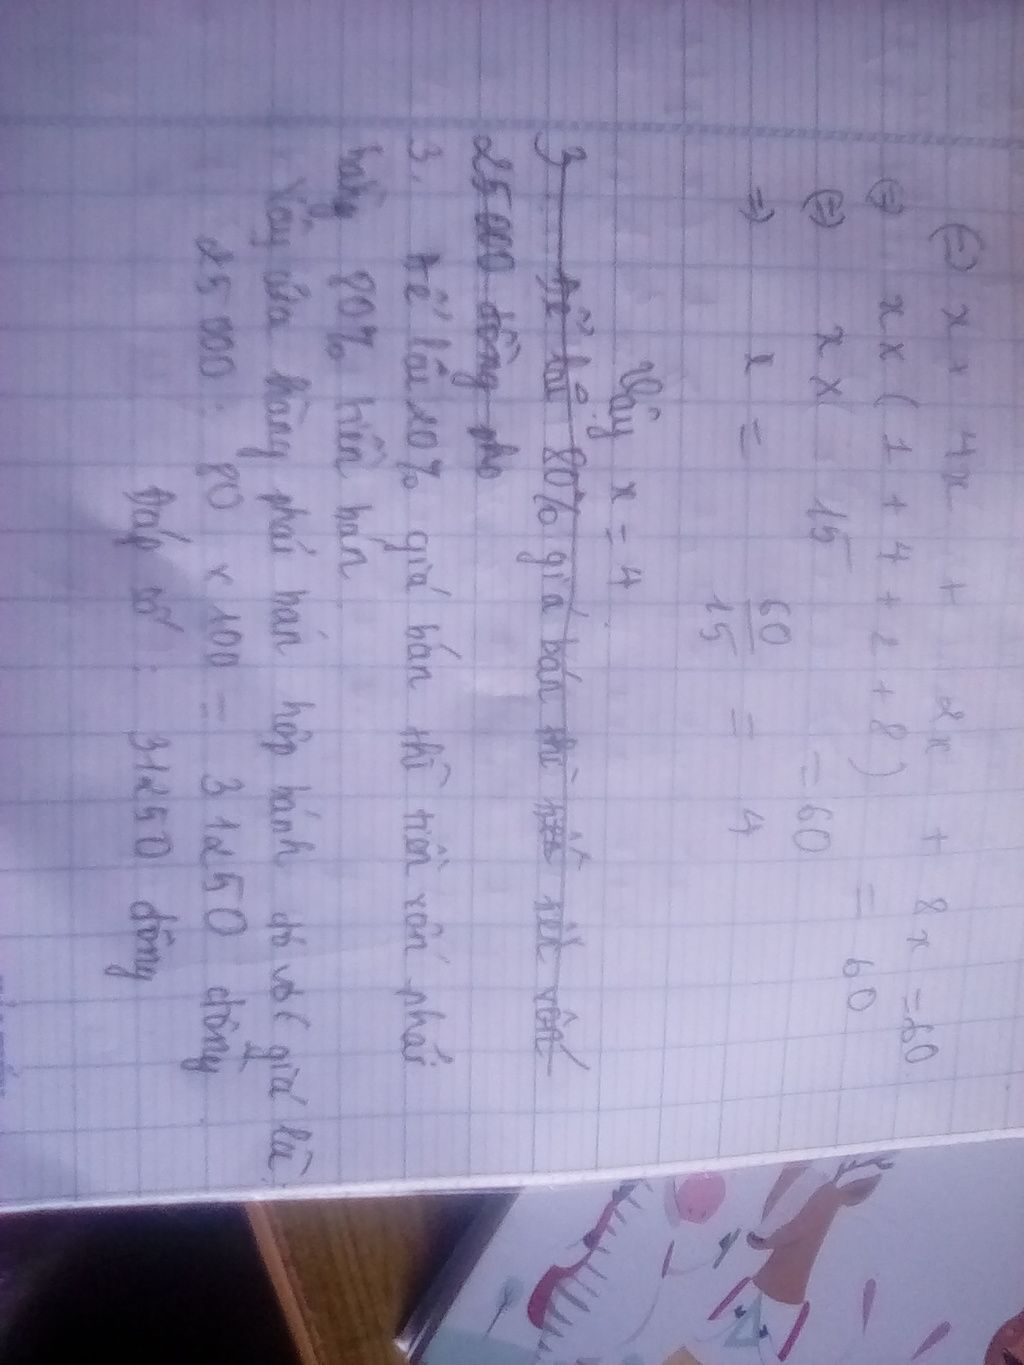 (=) x + 4x + 2x + 8x = 60
(=) x x ( 1 + 4 + 2 + 8 ) = 60
(=) x x 15 = 60
=) x = 60/15 = 4
Vậy x = 4
3 Để lãi 80% giá bán thì tiền vốn
25 000 đồng
3. Để lãi 20% giá bán thì tiền vốn phải
bằng 80% tiền bán
Vậy cửa hàng phải bán hộp bánh đó với giá là
25 000 : 80 x 100 = 31250 đồng
Đáp số : 31250 đồng